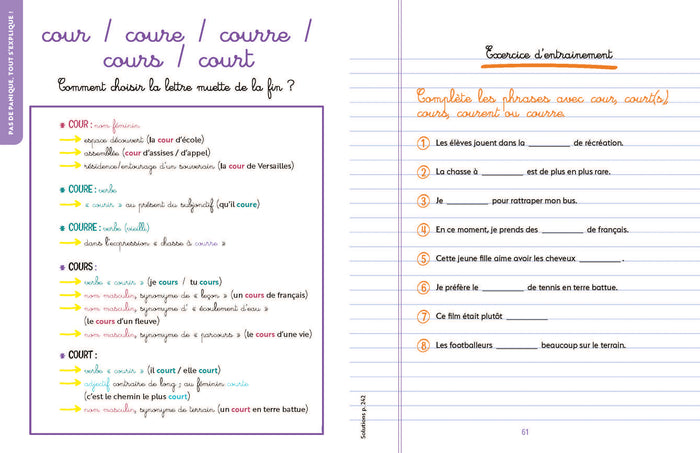 PAS DE PANIQUE, TOUT S'EXPLIQUE !
cour / coure / courre /
cours / court
Comment choisir la lettre muette de la fin ?
COUR : nom féminin
espace découvert (la cour d'école)
assemblée (cour d'assises / d'appel)
résidence/entourage d'un souverain (la cour de Versailles)
COURE : verbe
« courir » au présent du subjonctif (qu'il coure)
COURRE : verbe (vieilli)
dans l'expression « chasse à courre »
COURS :
verbe « courir » (je cours / tu cours)
nom masculin, synonyme de « leçon » (un cours de français)
nom masculin, synonyme d' « écoulement d'eau »
(le cours d'un fleuve)
nom masculin, synonyme de « parcours » (le cours d'une vie)
COURT :
verbe « courir » (il court / elle court)
adjectif contraire de long ; au féminin courte
(c'est le chemin le plus court)
nom masculin, synonyme de terrain (un court en terre battue)
Exercice d'entrainement
Complète les phrases avec cour, court(s),
cours, courent ou courre.
1 Les élèves jouent dans la ________ de récréation.
2 La chasse à ________ est de plus en plus rare.
3 Je ________ pour rattraper mon bus.
4 En ce moment, je prends des ________ de français.
5 Cette jeune fille aime avoir les cheveux ________ .
6 Je préfère le ________ de tennis en terre battue.
7 Ce film était plutôt ________
8 Les footballeurs ________ beaucoup sur le terrain.
Solutions p. 242
61